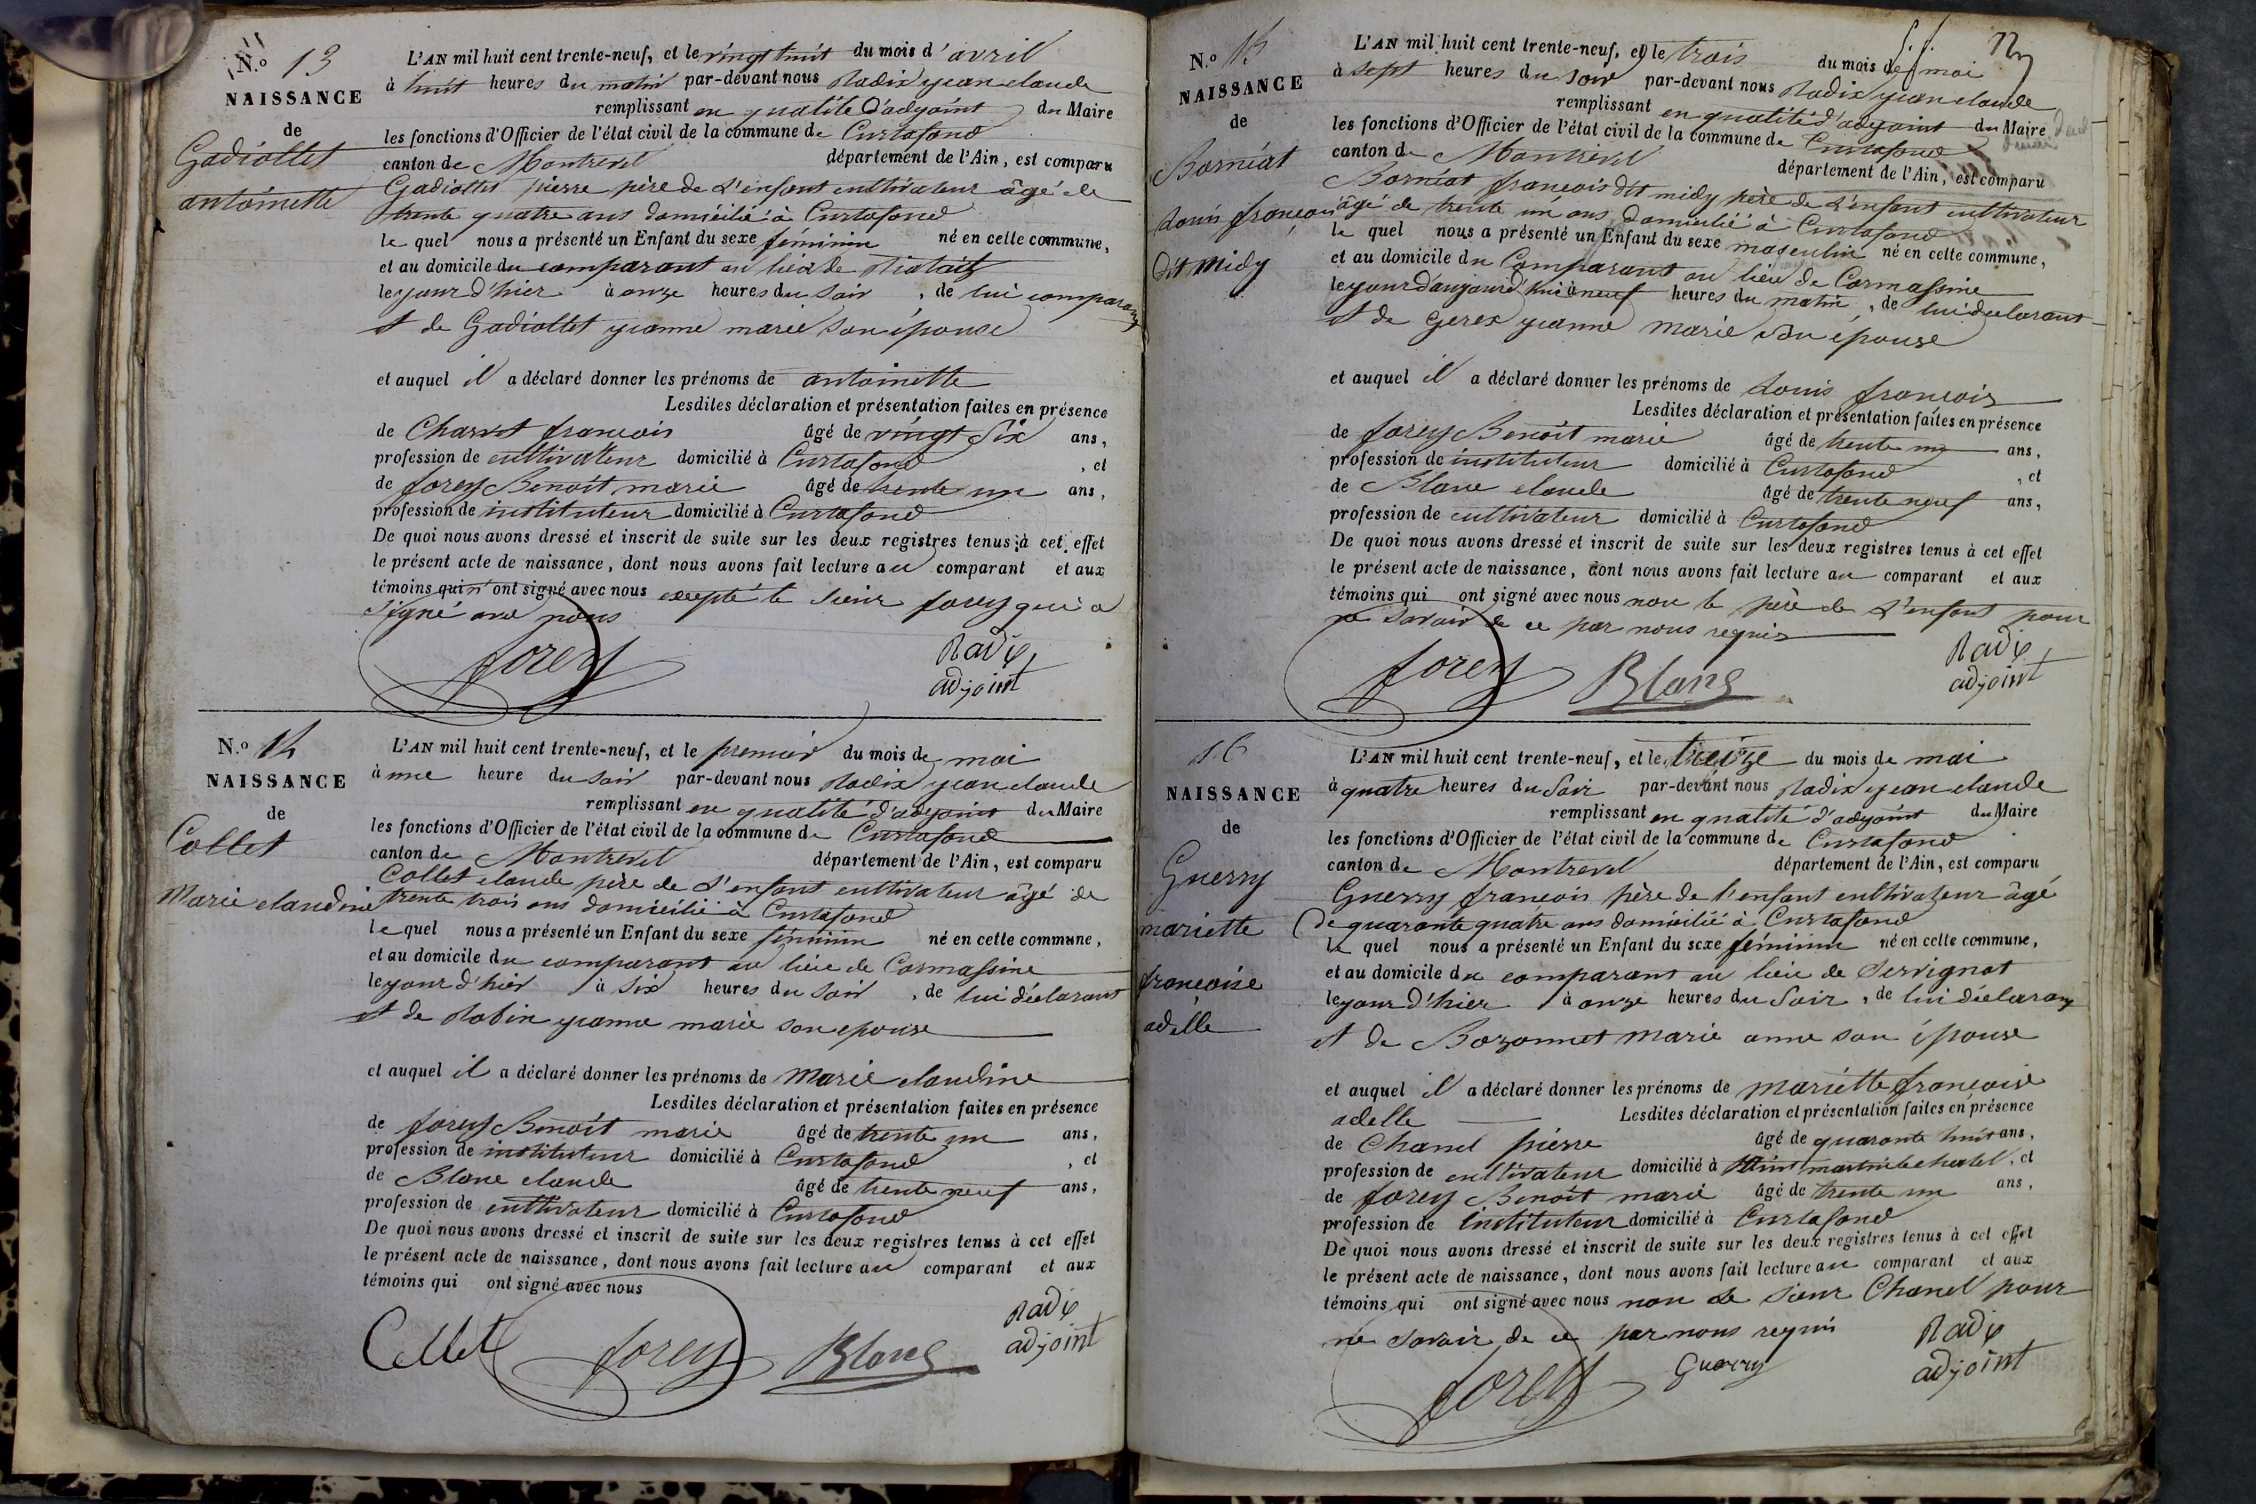 N.o 13
NAISSANCE
de
Gadiollet
antoinette
L'AN mil huit cent trente-neuf, et le vingt huit du mois d'avril
à huit heures du matin par-devant nous Radix jean claude
remplissant en qualité d'adjoint du Maire
les fonctions d'Officier de l'état civil de la commune de Curtafond
canton de Montrevel département de l'Ain, est comparu
Gadiollet pierre père de l'enfant cultivateur âgé de
trente quatre ans domicilié à Curtafond
le quel nous a présenté un Enfant du sexe féminin né en cette commune,
et au domicile du comparant au lieu de
le jour d'hier à onze heures du soir, de lui comparant
et de Gadiollet jeanne marie son épouse
et auquel il a déclaré donner les prénoms de antoinette
Lesdites déclaration et présentation faites en présence
de françois âgé de vingt six ans,
profession de cultivateur domicilié à Curtafond, et
de forey Benoit marie âgé de trente un ans,
profession de instituteur domicilié à Curtafond
De quoi nous avons dressé et inscrit de suite sur les deux registres tenus à cet effet
le présent acte de naissance, dont nous avons fait lecture au comparant et aux
témoins qui n'ont signé avec nous excepté le sieur forey qui a
signé avec nous
forey
Radix
adjoint
N.o 14
NAISSANCE
de
Collet
Marie claudine
L'AN mil huit cent trente-neuf, et le premier du mois de mai
à une heure du soir par-devant nous Radix jean claude
remplissant en qualité d'adjoint du Maire
les fonctions d'Officier de l'état civil de la commune de Curtafond
canton de Montrevel département de l'Ain, est comparu
Collet claude père de l'enfant cultivateur âgé de
trente trois ans domicilié à Curtafond
le quel nous a présenté un Enfant du sexe féminin né en cette commune,
et au domicile du comparant au lieu de Cormassine
le jour d'hier à six heures du soir, de lui déclarant
et de Robin jeanne marie son epouse
et auquel il a déclaré donner les prénoms de Marie claudine
Lesdites déclaration et présentation faites en présence
de forey Benoit marie âgé de trente un ans,
profession de instituteur domicilié à Curtafond, et
de Blanc claude âgé de trente neuf ans,
profession de cultivateur domicilié à Curtafond
De quoi nous avons dressé et inscrit de suite sur les deux registres tenus à cet effet
le présent acte de naissance, dont nous avons fait lecture au comparant et aux
témoins qui ont signé avec nous
Collet forey Blanc
Radix
adjoint
N.o 15
NAISSANCE
de
Bornéat
Louis françois
dit Midy
L'AN mil huit cent trente-neuf, et le trois du mois de mai
à sept heures du soir par-devant nous Radix jean claude
remplissant en qualité d'adjoint du Maire
les fonctions d'Officier de l'état civil de la commune de Curtafond
canton de Montrevel département de l'Ain, est comparu
Bornéat françois dit midy père de l'enfant cultivateur
âgé de trente un ans domicilié à Curtafond
le quel nous a présenté un Enfant du sexe masculin né en cette commune,
et au domicile du Comparant au lieu de Cormassine
le jour d'aujourd'hui à neuf heures du matin, de lui déclarant
et de Gerex jeanne Marie son epouse
et auquel il a déclaré donner les prénoms de Louis françois
Lesdites déclaration et présentation faites en présence
de forey Benoit marie âgé de trente un ans,
profession de instituteur domicilié à Curtafond, et
de Blanc claude âgé de trente neuf ans,
profession de cultivateur domicilié à Curtafond
De quoi nous avons dressé et inscrit de suite sur les deux registres tenus à cet effet
le présent acte de naissance, dont nous avons fait lecture au comparant et aux
témoins qui ont signé avec nous non le père de l'enfant pour
ne savoir de ce par nous requis
forey Blanc
Radix
adjoint
16
NAISSANCE
de
Guerry
mariette
françoise
adelle
L'AN mil huit cent trente-neuf, et le treize du mois de mai
à quatre heures du Soir par-devant nous Radix jean claude
remplissant en qualité d'adjoint du Maire
les fonctions d'Officier de l'état civil de la commune de Curtafond
canton de Montrevel département de l'Ain, est comparu
Guerry françois père de l'enfant cultivateur âgé
de quarante quatre ans domicilié à Curtafond
le quel nous a présenté un Enfant du sexe féminin né en cette commune,
et au domicile du comparant au lieu de Servignat
le jour d'hier à onze heures du Soir, de lui déclarant
et de Bozonnet Marie anne son épouse
et auquel il a déclaré donner les prénoms de Mariette françoise
adelle Lesdites déclaration et présentation faites en présence
de Chanel pierre âgé de quarante huit ans,
profession de cultivateur domicilié à Saint martin le chatel, et
de forey Benoit marie âgé de trente un ans,
profession de instituteur domicilié à Curtafond
De quoi nous avons dressé et inscrit de suite sur les deux registres tenus à cet effet
le présent acte de naissance, dont nous avons fait lecture au comparant et aux
témoins qui ont signé avec nous non le sieur Chanel pour
ne savoir de ce par nous requis
forey Guerry
Radix
adjoint